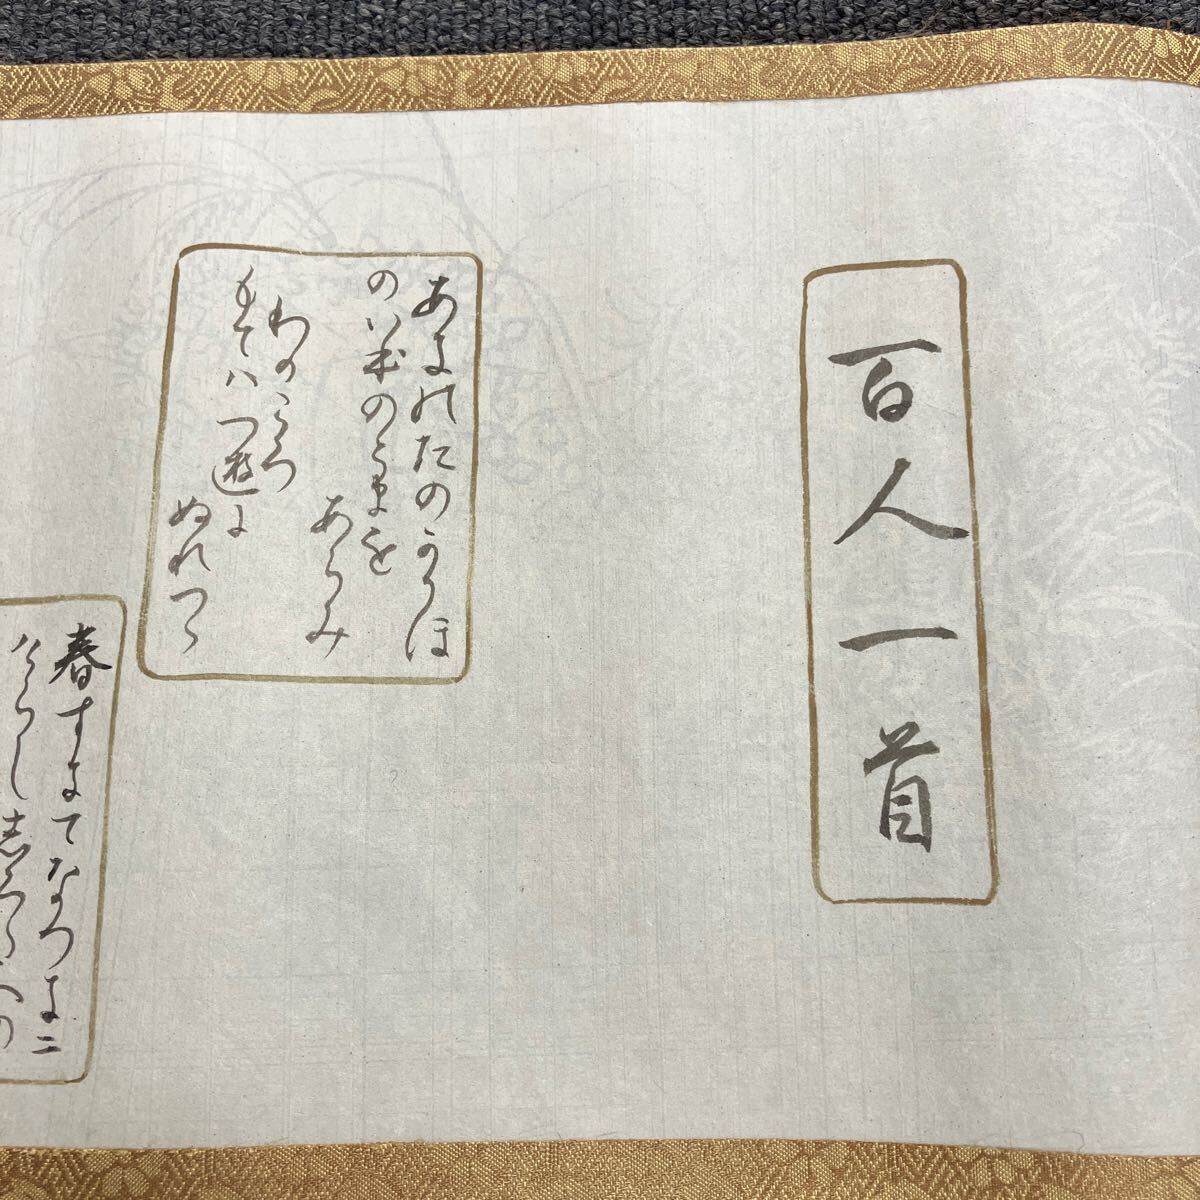 百人一首
あきのたのかりほ
のいほのとまを
あらみ
わかころ
もてハつ遊に
ぬれつゝ
春すきてなつきニ
けらし志ろたへの